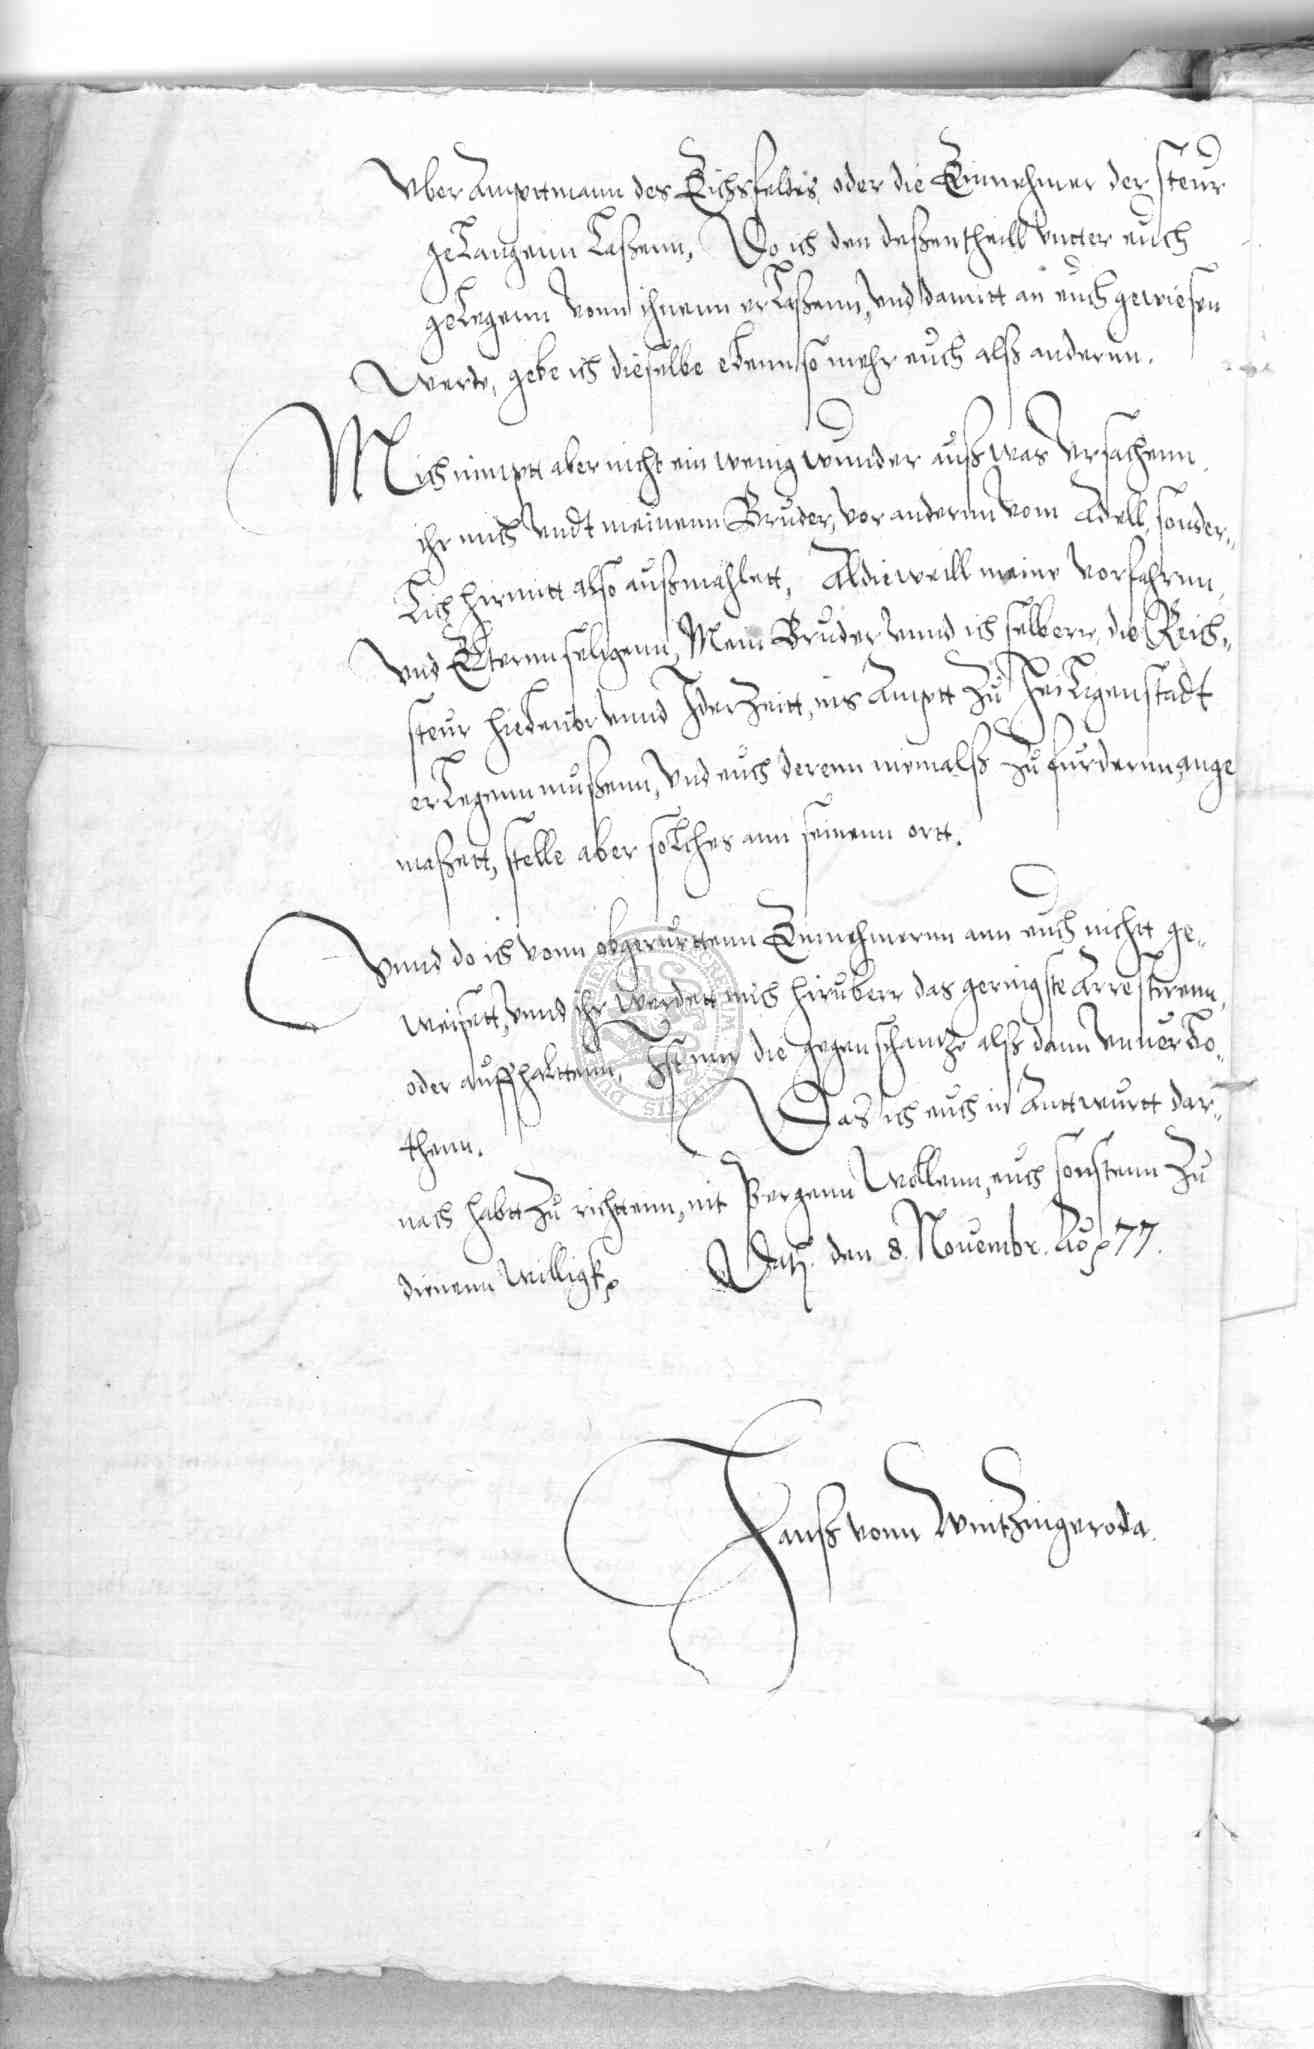 Uber Ampttmann des Eichsfeldes, oder die Einnehmer der steur
gelangenn laßenn, Do ich den deßentheill unter euch
gelegenn vonn ihnenn erlaßenn, und damitt an euch gewiesen
werde, gebe ich dieselbe ebenn so mehr euch alß anderenn.
Mich nimptt aber nicht ein wenig wunder auß was ursachenn,
ihr mich undt meinenn Bruder, vor anderenn vom Adell, sonder-
lich hirmitt also außmahlett, Aldieweill meine vorfahrnn,
und Elternn seligenn, Mein Bruder unnd ich selberr, die Reich-
steur hiebeuor unnd Jderzeitt, ins Amptt zu Heiligenstadt
erlegenn mußenn, und euch derenn niemalß zu furdernn, ange
maßett, stelle aber solches ann seinenn ortt.
Unnd do ich vonn obgerurttenn Einnehmernn ann euch nichtt ge-
weisett, unnd ihr werdett mich hiruberr das geringste Arrestirenn,
oder auffhalttenn, Ist mir die gegenschantze alß dann unuerbo-
thenn. Das ich euch in Anttwurtt dar-
nach habtt zu richttenn, nit Bergenn wollenn, euch sonstenn zu
dienenn willigk. Dath. den 8. Nouembr. Ao 77.
Hanß vonn Wintzingeroda.